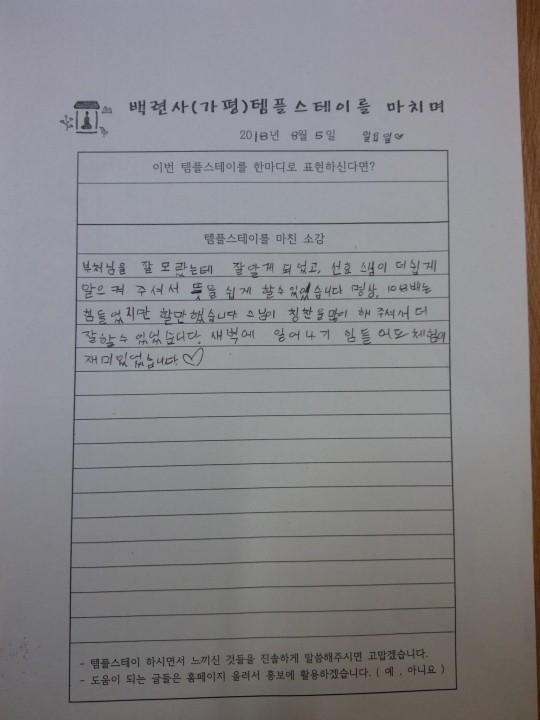 백련사(가평)템플스테이를 마치며
2018년 8월 5일 일요일♡
이번 템플스테이를 한마디로 표현하신다면?
템플스테이를 마친 소감
부처님을 잘 모랐는데 잘알게 되었고, 선효 스님이 더쉽게
알으켜 주셔서 뜻을 쉽게 할수있었습니다 명상, 108배는
힘들었지만 할만했습니다 스님이 칭찬을많이 해 주셔서 더
잘할수 있었습니다. 새벽에 일어나기 힘들어도 체험이
재미있었습니다.♡
- 템플스테이 하시면서 느끼신 것들을 진솔하게 말씀해주시면 고맙겠습니다.
- 도움이 되는 글들은 홈페이지 올려서 홍보에 활용하겠습니다. ( 예 , 아니요 )